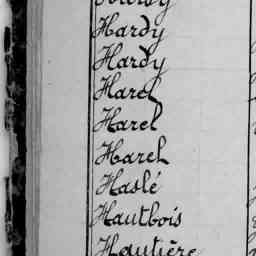 Hardy
Hardy
Harel
Harel
Harel
Haslé
Hautbois
Hautière